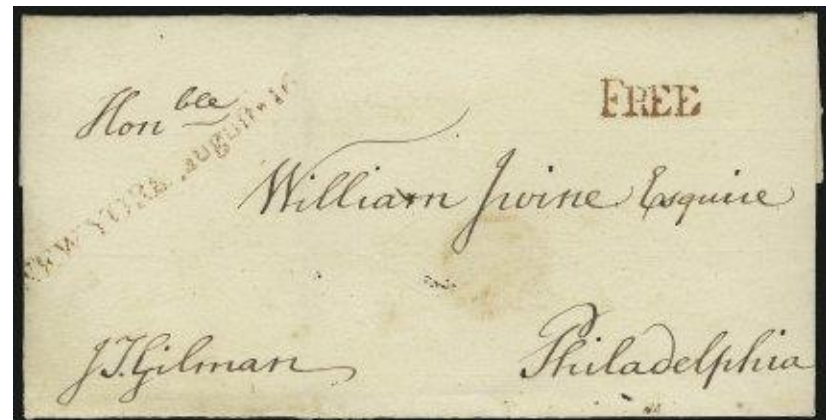 Hon ble
FREE
NEW YORK August 16
William Irvine Esquire
J T Gilman
Philadelphia